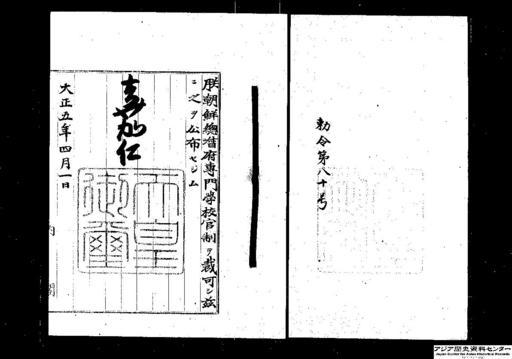 勅令第八十号
朕朝鮮總督府専門学校官制ヲ裁可シ茲
ニ之ヲ公布セシム
嘉仁
天皇
御璽
大正五年四月一日
内閣
アジア歴史資料センター
Japan Center for Asian Historical Records